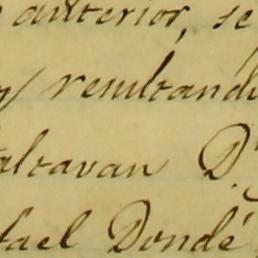 anterior, se
y resultando
altavan D.
fael Dondé